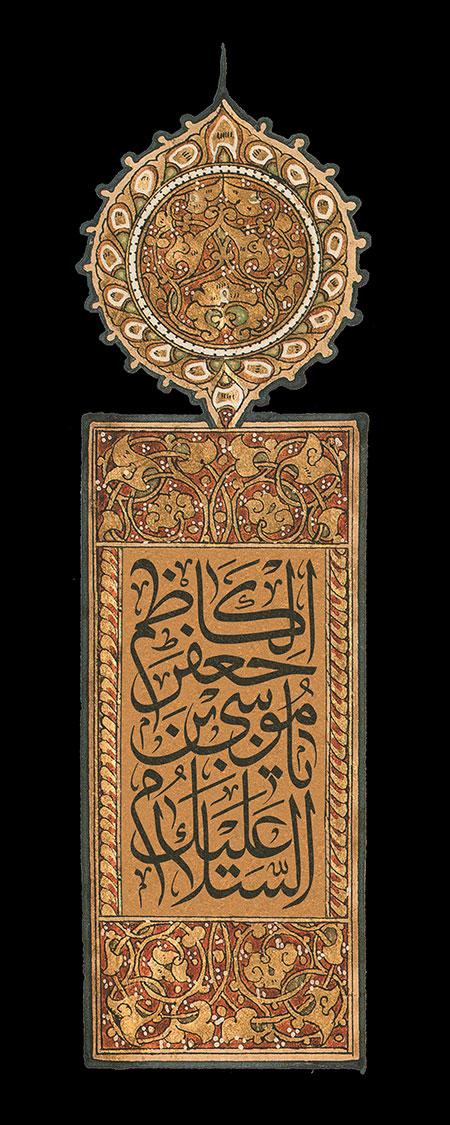 السَّلام عليك
يا موسى بن
جعفر
الكاظم